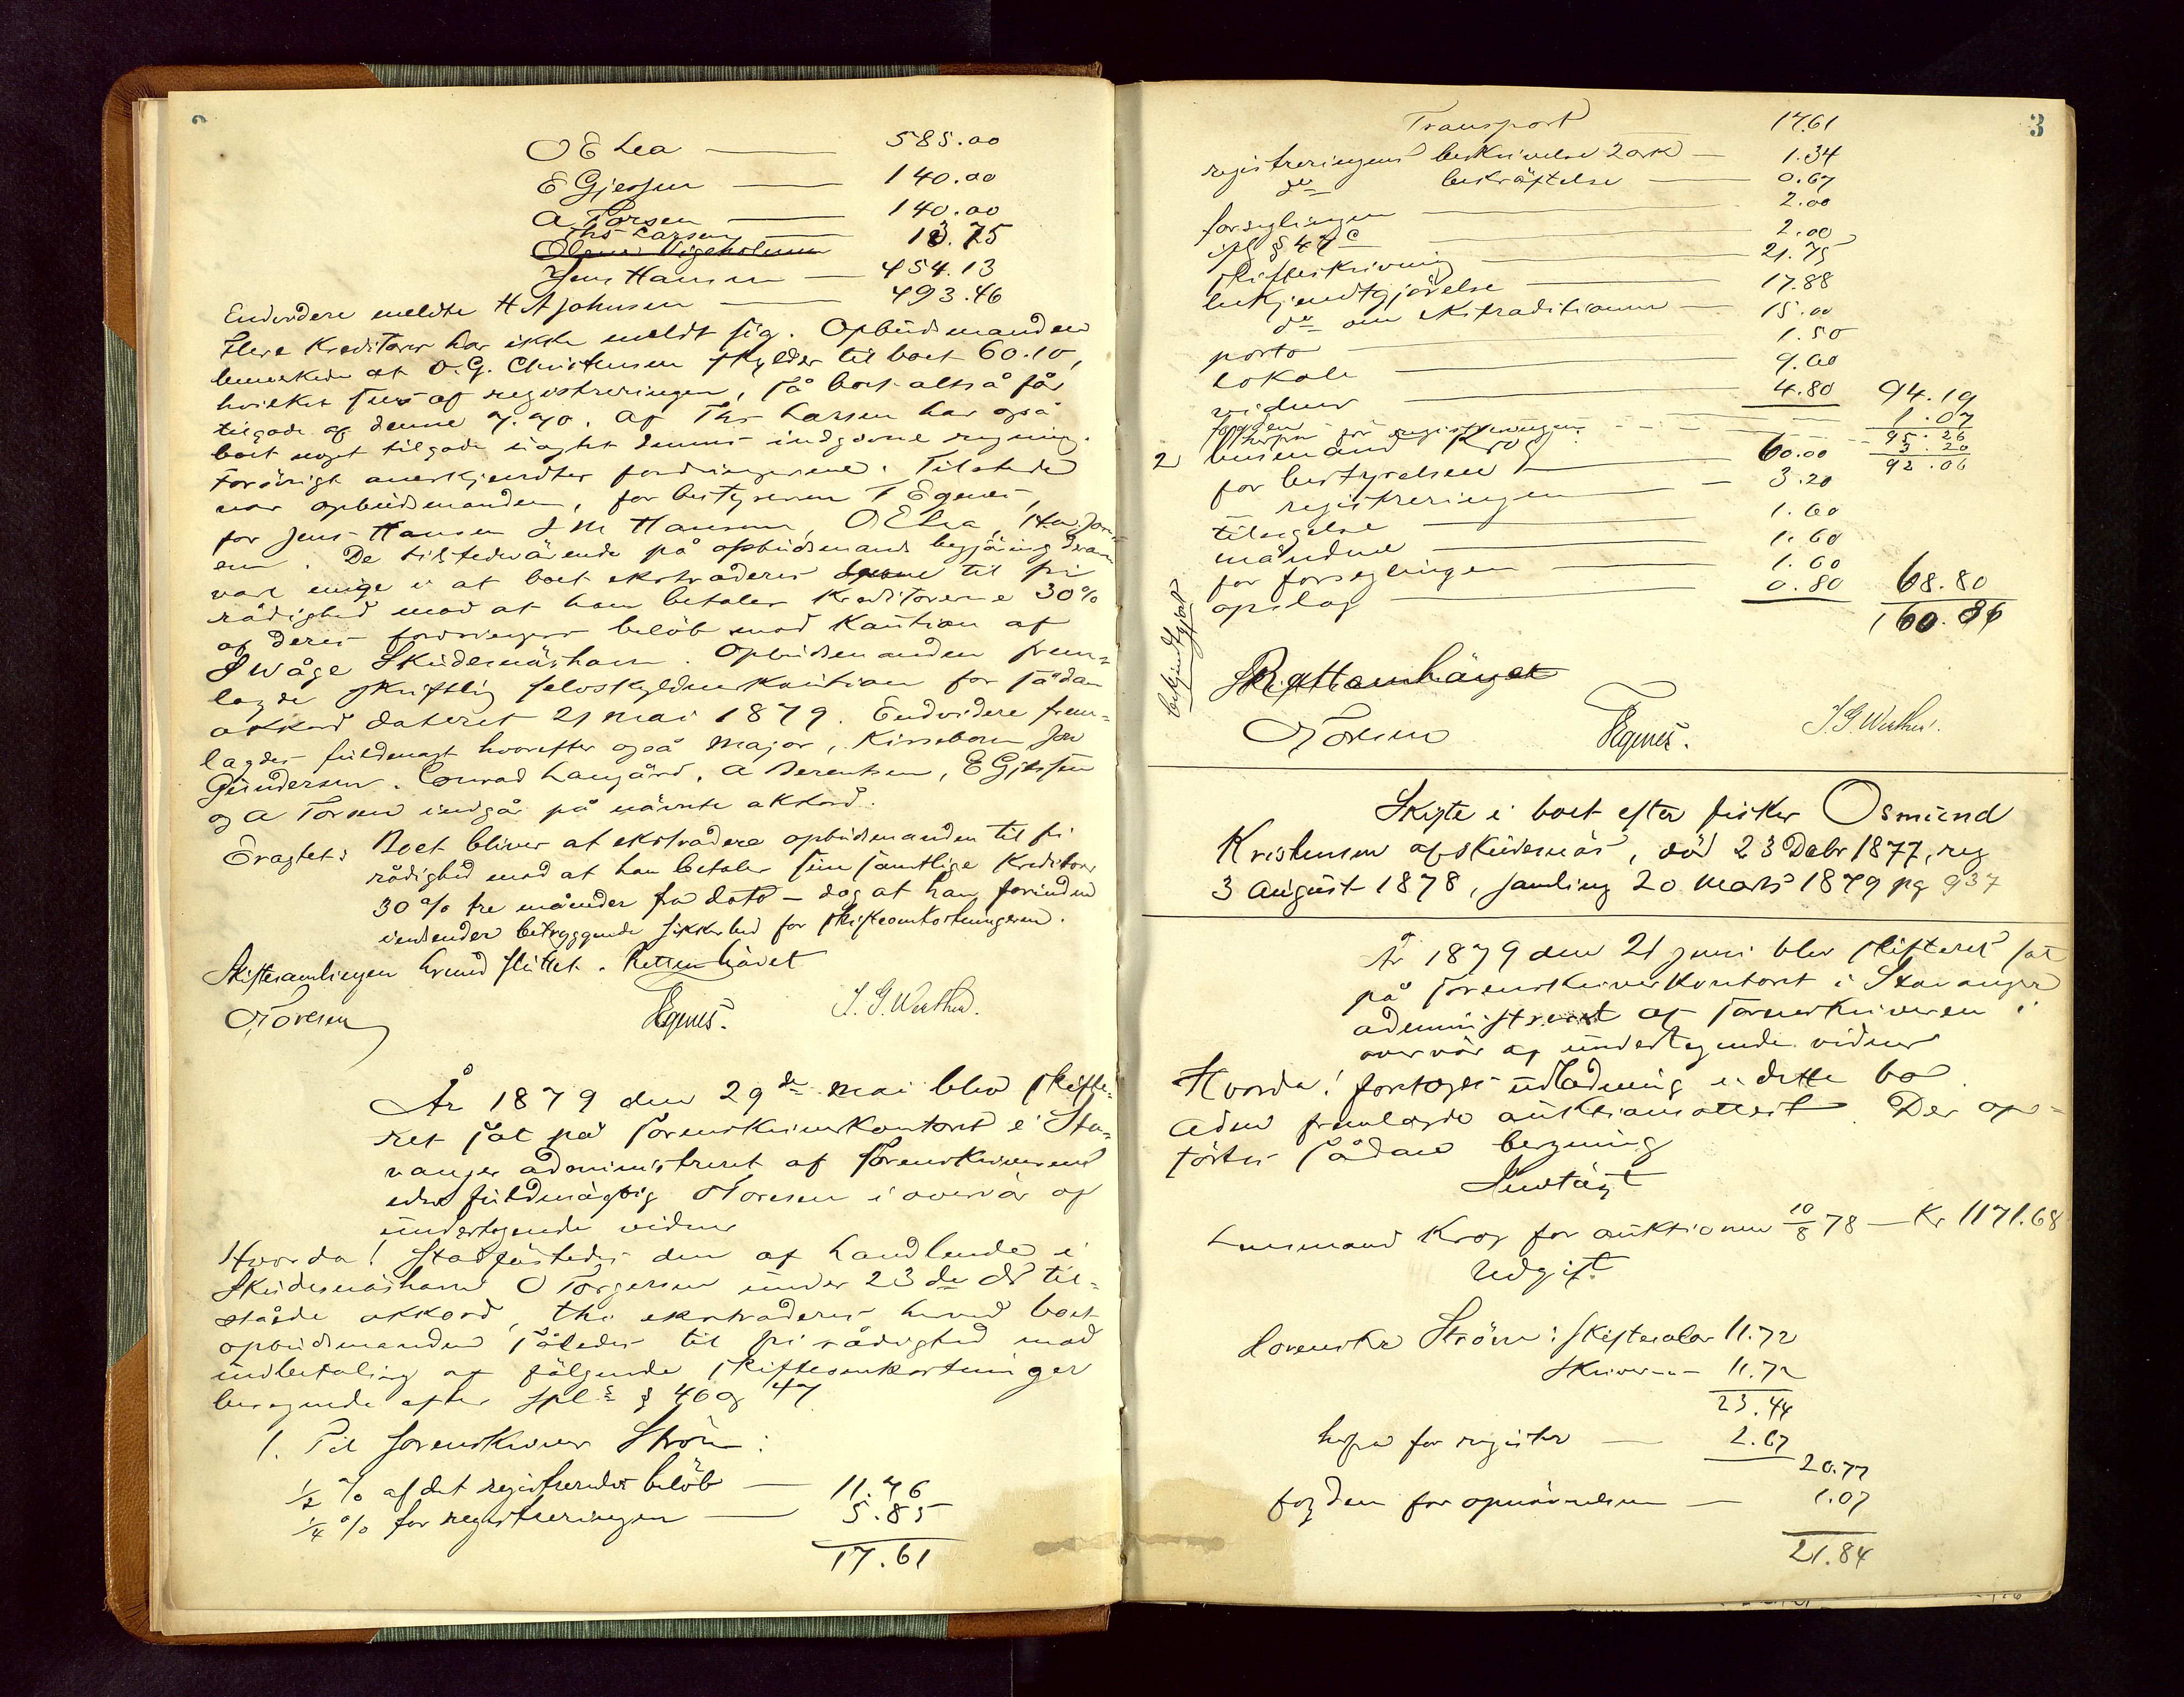 O E Lea — 585.00
E Gjessen — 140.00
A Torsen — 140.00
Ths Larsen — 13.75
Jens Hansen — 454.13
Endvidere meldte H A Johnsen — 493.46
Flere Kreditorer har ikke meldt sig. Opbudsmanden
bemerkede at O. G. Christensen skylder til boet 60.10,
hvilket sees af registreringen, så boet altså får
tilgode af denne 7.70. Af Ths Larsen har også
boet noget tilgode ifølge dennes indgivne regning.
Forövrigt anerkjendtes fordringerne. Tilstede
var opbudsmanden, for bestyreren T Egenes,
for Jens Hansen J M Hansen, O E Lea,
De tilstedevärende på opbudsmands begjäring
vare enige i at boet ekstraderes denne til fri
rådighed mod at han betaler Kreditorerne 30%
af deres fordringers belöb mod Kaution af
J Wåge Skudesnäshavn. Opbudsmanden frem-
lagde skriftlig selvskyldnerkaution for sådan
akkord dateret 21 mai 1879. Endvidere frem-
lagdes fuldmagt hvorefter også Major, Kinneborn Jon
Gundersen, Conrad Langård, A Berentsen, E Gjessen
og A Torsen indgår på nävnte akkord.
Eragtet: Boet bliver at ekstradere opbudsmanden til fri
rådighed mod at han betaler sine samtlige Kreditorer
30% tre måneder fra dato – dog at han forinden
indsender betryggende sikkerhed for skifteomkostningerne.
Skiftesamlingen hermed sluttet. Retten hävet
O Toresen T Egenes. J. G. Werthes.
År 1879 den 29de mai blev skifte-
ret sat på sorenskriverkontoret i Sta-
vanger administreret af sorenskriverens
edsv fuldmägtig O Toresen i overvär af
undertegnede vidner
Hvorda! Stadfästedes den af handlende i
Skudesnäshavn O Torgersen under 23de ds til-
ståede akkord, thi ekstraderes hermed boet
opbudsmanden således til fri rådighed mod
indbetaling af fölgende skifteomkostninger
beregnede efter spl. § 46 og 47
1. Til sorenskriver Ström:
½ % af det registrerede belöb — 11.76
¼ % for registreringen — 5.85
17.61
3
Transport 17.61
registreringens beskrivelse 2 ark — 1.34
do bekräftelse — 0.67
forseglingen — 2.00
spl § 47 c — 2.00
skifteskrivning — 21.75
bekjendtgjörelse — 17.88
do om ekstraditionen — 15.00
porto — 1.50
lokale — 9.00
vidner — 4.80 94.19
fogden 1.07
95.26
herfra for registreringen 3.20
92.06
2) lensmand Krog
for bestyrelsen — 60.00
— registreringen — 3.20
tilsigelse — 1.60
mändene — 1.60
for forseglingen — 1.60
opslag — 0.80 68.80
160.86
bekjendtgjort
Retten hävet
O Toresen T Egenes. J. G. Werthes.
Skifte i boet efter fisker Osmund
Kristensen af Skudesnäs, död 23 Debr 1877, reg
3 august 1878, samling 20 marts 1879 pg 937
År 1879 den 21 juni blev skifteret sat
på sorenskriverkontoret i Stavanger
administreret af sorenskriveren i
overvär af undertegnede vidner
Hvorda! foretoges udlodning i dette bo.
Adm fremlagde auktionsattest. Der op-
förtes sådan beregning
Indtägt
Lensmand Krog for auktionen 10/8 78 — Kr 1171.68
Udgift
Sorenskr Ström: skiftesalar 11.72
skriver-"- 11.72
23.44
herfra for register — 2.67
20.77
fogden for opnävnelsen — 1.07
21.84